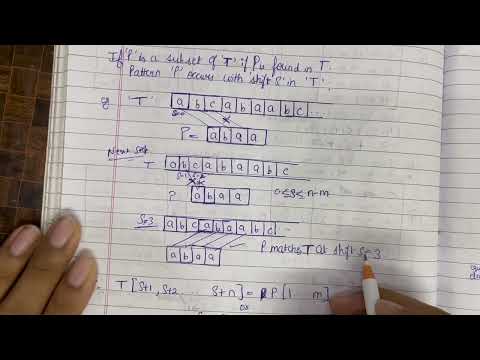 If 'P' is a subset of 'T' if P is found in T.
Pattern 'P' occurs with 'shift S' in 'T'.
eg 'T' a b c a b a a b c ...
S=0
P= a b a a
Next Set
T a b c a b a a b c
P a b a a 0≤S≤n-m
S=3 a b c a b a a b c
P matches T at shift S=3
a b a a
T [S+1, S+2 ... S+n] = P[1 .. m]
or